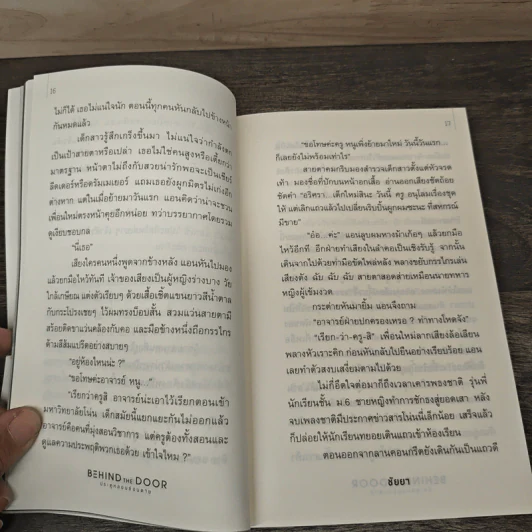 16
ไม่ก็ได้ เธอไม่แน่ใจนัก ตอนนี้ทุกคนหันกลับไปข้างหน้า
กันหมดแล้ว
เด็กสาวรู้สึกเกร็งขึ้นมา ไม่แน่ใจว่ากำลังตก
เป็นเป้าสายตาหรือเปล่า เธอไม่ใช่คนสูงหรือเตี้ยกว่า
มาตรฐาน หน้าตาไม่ถึงกับสวยน่ารักพอจะเป็นเชียร์
ลีดเดอร์หรือดรัมเมเยอร์ แถมเธอยังผูกมิตรไม่เก่งอีก
ต่างหาก แต่ในเมื่อย้ายมาแล้ว แอนคิดว่าน่าจะชวน
เพื่อนใหม่ตรงหน้าคุยอีกหน่อย ทว่าบรรยากาศโดยรวม
ดูเงียบชอบกล
"นี่เธอ"
เสียงใครคนหนึ่งพูดจากข้างหลัง แอนหันไปมอง
แล้วยกมือไหว้ทันที เจ้าของเสียงเป็นผู้หญิงร่างบาง วัย
ใกล้เกษียณ แต่งตัวเรียบๆ ด้วยเสื้อเชิ้ตแขนยาวสีน้ำตาล
กับกระโปรงเชยๆ ไว้ผมทรงบ๊อบสั้น สวมแว่นสายตามี
สร้อยติดขาแว่นคล้องกับคอ และมือข้างหนึ่งถือกรรไกร
ด้ามสีส้มแปร๊ดอย่างสบายๆ
"อยู่ห้องไหนน่ะ ?"
"ขอโทษค่ะอาจารย์ หนู..."
"เรียกว่าครูสิ อาจารย์น่ะเอาไว้เรียกตอนเข้า
มหาวิทยาลัยโน่น เด็กสมัยนี้แยกแยะกันไม่ออกแล้ว
อาจารย์คือคนที่มุ่งสอนวิชาการ แต่ครูต้องทั้งสอนและ
ดูแลความประพฤติพวกเธอด้วย เข้าใจไหม ?"
BEHIND THE DOOR
"ขอโทษค่ะครู หนูเพิ่งย้ายมาใหม่ วันนี้วันแรก
ก็เลยยังไม่พร้อมเท่าไร"
สายตาคมกริบมองสำรวจเด็กสาวตั้งแต่หัวจรด
เท้า มองชื่อที่ปักบนหน้าอกเสื้อ อ่านออกเสียงชัดถ้อย
ชัดคำ "อริศรา... เด็กใหม่สินะ วันนี้ ครู อนุโลมเรื่องชุด
ให้ แต่เลิกแถวแล้วไปเปลี่ยนริบบิ้นผูกผมซะนะ ที่สหกรณ์
มีขาย"
"อ้อ...ค่ะ" แอนลูบผมหางม้าเก้อๆ แล้วยกมือ
ไหว้อีกที อีกฝ่ายทำเสียงในลำคอเป็นเชิงรับรู้ จากนั้น
เดินจากไปด้วยท่ามือขัดไพล่หลัง พลางขยับกรรไกรเล่น
เสียงดัง ฉับ ฉับ ฉับ สายตาสอดส่ายเหมือนนายทหาร
หญิงผู้เข้มงวด
กระต่ายหันมายิ้ม แอนจึงถาม
"อาจารย์ฝ่ายปกครองเหรอ ? ท่าทางโหดจัง"
"เรียก-ว่า-ครู-สิ" เพื่อนใหม่ลากเสียงล้อเลียน
พลางหัวเราะคิก ก่อนหันกลับไปยืนอย่างเรียบร้อย แอน
เลยทำตัวสงบเสงี่ยมตามไปด้วย
ไม่กี่อึดใจต่อมาก็ถึงเวลาเคารพธงชาติ รุ่นพี่
นักเรียนชั้น ม.6 ชายหญิงทำการชักธงสู่ยอดเสา หลัง
จบเพลงชาติมีประกาศข่าวสารโน่นนี่เล็กน้อย เสร็จแล้ว
ก็ปล่อยให้นักเรียนทยอยเดินแถวเข้าห้องเรียน
ตอนออกจากลานคอนกรีตยังเดินกันเป็นแถวดี
ชัยยา